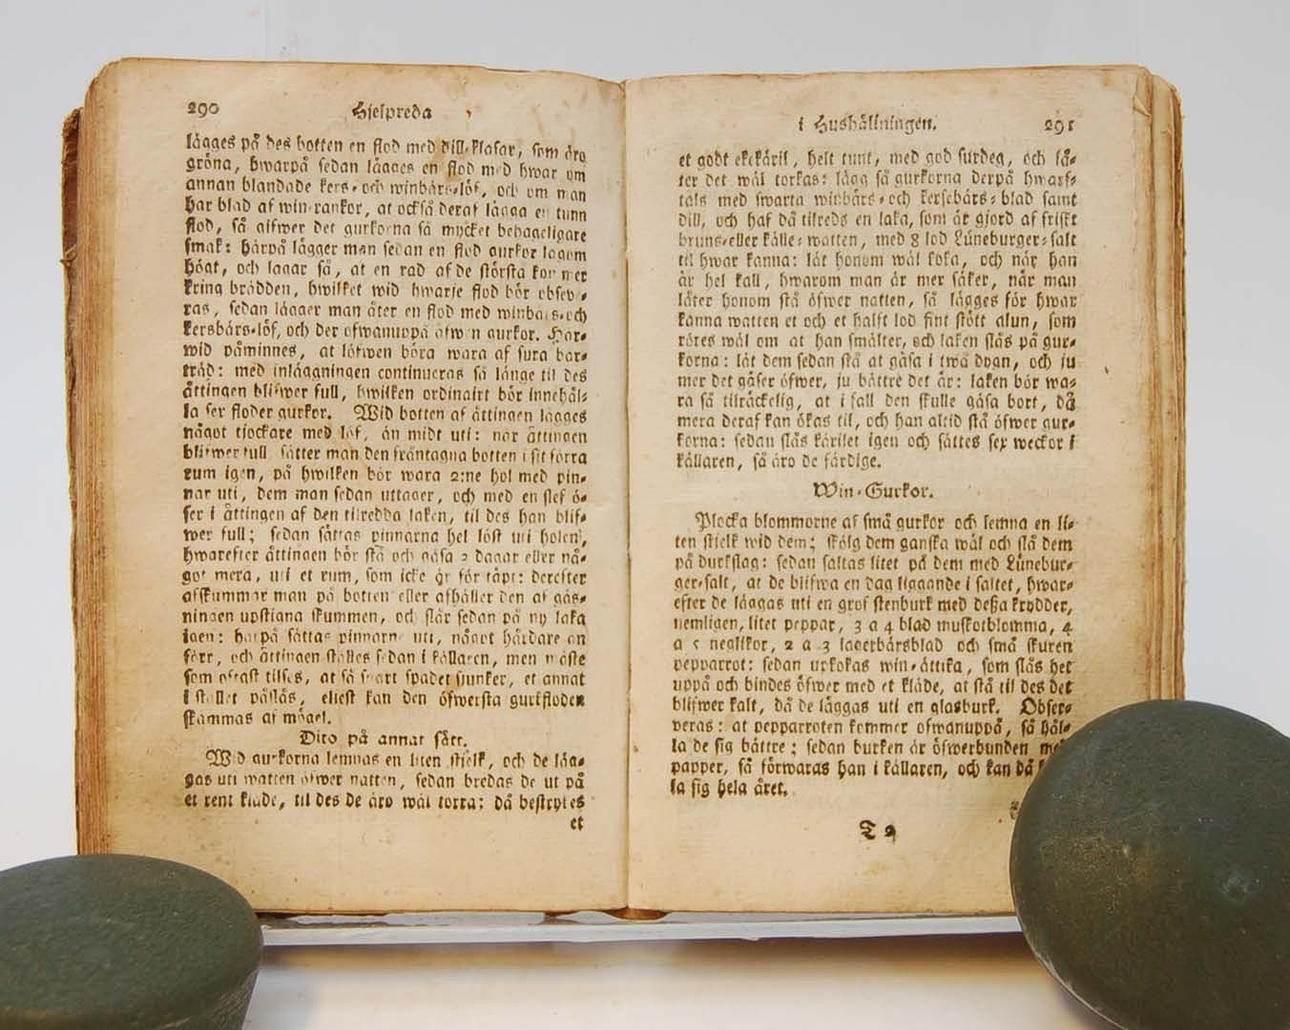 290 Hjelpreda
lägges på des botten en flod med dill-klasar, som äro
gröna, hwarpå sedan lägges en flod med hwar om
annan blandade kers- och winbärs-löf, och om man
har blad af win-rankor, at också deraf lägga en tunn
flod, så blifwer det gurkorna så mycket behageligare
smak: härpå lägger man sedan en flod gurkor lagom
högt, och lagar så, at en rad af de största kommer
kring brädden, hwilket wid hwarje flod bör obser-
ras, sedan lägger man åter en flod med winbärs-och
kersbärs-löf, och der ofwanuppå åfwen gurkor. Här-
wid påminnes, at löfwen böra wara af sura bär-
träd: med inläggningen continueras så länge til des
åttingen blifwer full, hwilken ordinairt bör innehål-
la sex floder gurkor. Wid botten af åttingen lägges
något tjockare med löf, än midt uti: när åttingen
blifwer full sätter man den fråntagna botten i sit förra
rum igen, på hwilken bör wara 2:ne hol med pin-
nar uti, dem man sedan uttager, och med en slef ö-
ser i åttingen af den tilredda laken, til des han blif-
wer full; sedan sättas pinnarna hel löst uti holen,
hwarefter åttingen bör stå och gäsa 2 dagar eller nå-
got mera, uti et rum, som icke är för täpt: derefter
afskummar man på botten eller afhäller den af gäs-
ningen upstigna skummen, och slår sedan på ny laka
igen: härpå sättas pinnarne uti, något hårdare än
förr, och åttingen ställes sedan i källaren, men måste
som oftast tilses, at så snart spadet sjunker, et annat
i stället påslås, eljest kan den öfwersta gurkfloden
skämmas af mögel.
Dito på annat sätt.
Wid gurkorna lemnas en liten stjelk, och de läg-
gas uti watten öfwer natten, sedan bredas de ut på
et rent kläde, til des de äro wäl torra: då bestrykes
et
i Hushållningen. 291
et godt ekekäril, helt tunt, med god surdeg, och lå-
ter det wäl torkas: lägg så gurkorna derpå hwarf-
tals med swarta winbärs- och kersebärs-blad samt
dill, och haf då tilreds en laka, som är gjord af friskt
bruns-eller källe-watten, med 8 lod Lüneburger-salt
til hwar kanna: låt honom wäl koka, och när han
är hel kall, hwarom man är mer säker, när man
låter honom stå öfwer natten, så lägges för hwar
kanna watten et och et halft lod fint stött alun, som
röres wäl om at han smälter, och laken slås på gur-
korna: låt dem sedan stå at gäsa i twå dygn, och ju
mer det gäser öfwer, ju bättre det är: laken bör wa-
ra så tilräckelig, at i fall den skulle gäsa bort, då
mera deraf kan ökas til, och han altid stå öfwer gur-
korna: sedan slås kärilet igen och sättes sex weckor i
källaren, så äro de färdige.
Win-Gurkor.
Plocka blommorne af små gurkor och lemna en li-
ten stjelk wid dem; skölg dem ganska wäl och slå dem
på durkslag: sedan saltas litet på dem med Lünebur-
ger-salt, at de blifwa en dag liggande i saltet, hwar-
efter de läggas uti en grof stenburk med deßa krydder,
nemligen, litet peppar, 3 a 4 blad muskotblomma, 4
a 5 neglikor, 2 a 3 lagerbärsblad och små skuren
pepparrot: sedan upkokas win-ättika, som slås het
uppå och bindes öfwer med et kläde, at stå til des det
blifwer kalt, då de läggas uti en glasburk. Obser-
veras: at pepparroten kommer ofwanuppå, så hål-
la de sig bättre; sedan burken är öfwerbunden med
papper, så förwaras han i källaren, och kan då
la sig hela året.
T 2